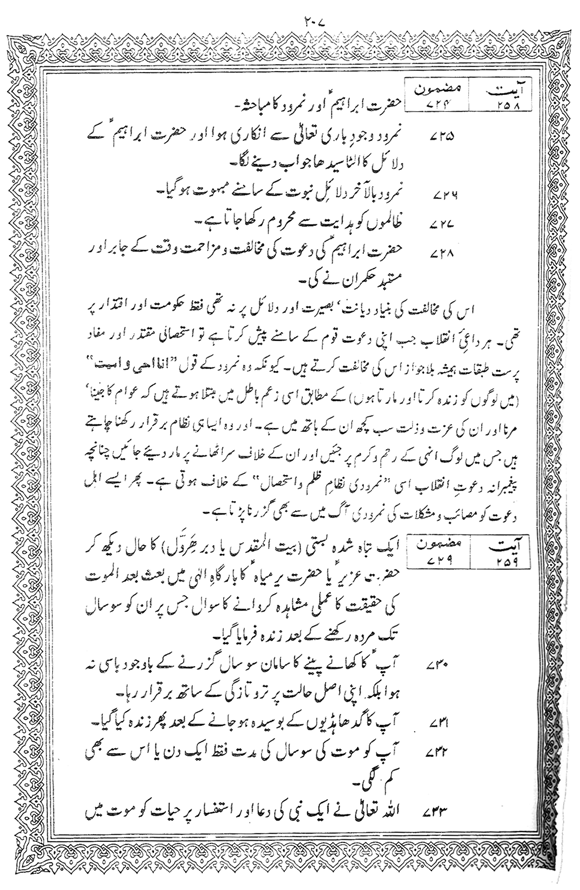 ۲۰۷
آیت ۲۵۸ مضمون ۷۲۴ حضرت ابراہیمؑ اور نمرود کا مباحثہ۔
۷۲۵ نمرود وجودِ باری تعالیٰ سے انکاری ہوا اور حضرت ابراہیمؑ کے
دلائل کا الٹا سیدھا جواب دینے لگا۔
۷۲۶ نمرود بالآخر دلائلِ نبوت کے سامنے مبہوت ہو گیا۔
۷۲۷ ظالموں کو ہدایت سے محروم رکھا جاتا ہے۔
۷۲۸ حضرت ابراہیمؑ کی دعوت کی مخالفت و مزاحمت وقت کے جابر اور
مستبد حکمران نے کی۔
اس کی مخالفت کی بنیاد دیانت، بصیرت اور دلائل پر نہ تھی فقط حکومت اور اقتدار پر
تھی۔ ہر داعیٔ انقلاب جب اپنی دعوت قوم کے سامنے پیش کرتا ہے تو استحصالی مقتدر اور مفاد
پرست طبقات ہمیشہ بلاجواز اس کی مخالفت کرتے ہیں۔ کیونکہ وہ نمرود کے قول “انا احی و امیت”
(میں لوگوں کو زندہ کرتا اور مارتا ہوں) کے مطابق اسی زعمِ باطل میں مبتلا ہوتے ہیں کہ عوام کا جینا،
مرنا اور ان کی عزت و ذلت سب کچھ ان کے ہاتھ میں ہے۔ اور وہ ایسا ہی نظام برقرار رکھنا چاہتے
ہیں جس میں لوگ انہی کے رحم و کرم پر جئیں اور ان کے خلاف سر اٹھانے پر مار دیئے جائیں چنانچہ
پیغمبرانہ دعوتِ انقلاب اسی “نمرودی نظامِ ظلم و استحصال” کے خلاف ہوتی ہے۔ پھر ایسے اہل
دعوت کو مصائب و مشکلات کی نمرودی آگ میں سے بھی گزرنا پڑتا ہے۔
آیت ۲۵۹ مضمون ۷۲۹ ایک تباہ شدہ بستی (بیت المقدس یا دیر ھِرَقل) کا حال دیکھ کر
حضرت عزیرؑ یا حضرت یرمیاہؑ کا بارگاہِ الٰہی میں بعث بعد الموت
کی حقیقت کا عملی مشاہدہ کروانے کا سوال جس پر ان کو سو سال
تک مردہ رکھنے کے بعد زندہ فرمایا گیا۔
۷۳۰ آپؑ کا کھانے پینے کا سامان سو سال گزرنے کے باوجود باسی نہ
ہوا بلکہ اپنی اصل حالت پر تروتازگی کے ساتھ برقرار رہا۔
۷۳۱ آپ کا گدھا ہڈیوں کے بوسیدہ ہو جانے کے بعد پھر زندہ کیا گیا۔
۷۳۲ آپ کو موت کی سو سال کی مدت فقط ایک دن یا اس سے بھی
کم لگی۔
۷۳۳ اللہ تعالیٰ نے ایک نبی کی دعا اور استفسار پر حیات کو موت میں